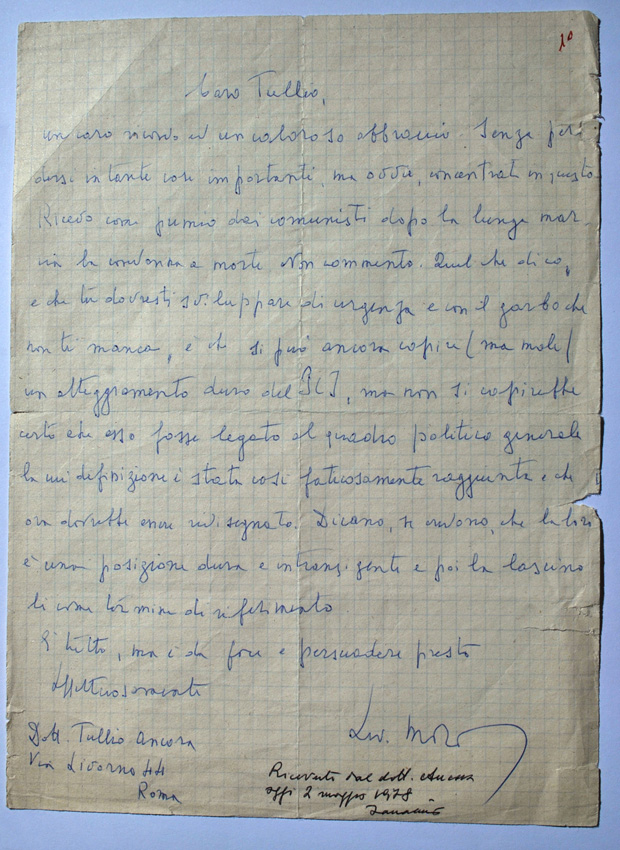 1°
Caro Tullio,
un caro ricordo ed un caloroso abbraccio. Senza per-
dersi in tante cose importanti, ma ovvie, concentrati in questo
Ricevo come premio dai comunisti dopo la lunga mar-
cia la condanna a morte. Non commento. Quel che dico,
e che tu dovresti sviluppare di urgenza e con il garbo che
non ti manca, è che si può ancora capire (ma male)
un atteggiamento duro del PCI, ma non si capirebbe
certo che esso fosse legato al quadro politico generale
la cui definizione è stata così faticosamente raggiunta e che
ora dovrebbe essere ridisegnato. Dicano, se credono, che la loro
è una posizione dura e intransigente e poi la lascino
lì come termine di riferimento.
È tutto, ma è da fare e persuadere presto
Affettuosamente
Dott. Tullio Ancora
Via Livorno 44
Roma
Moro
Ricevuta dal dott. Ancora
oggi 2 maggio 1978